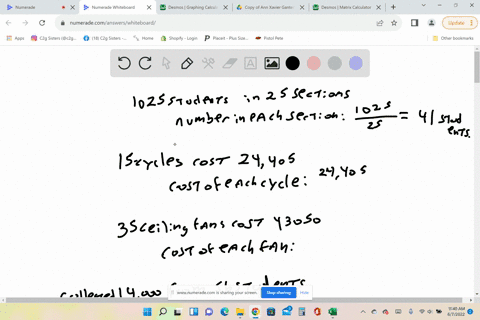 Numerade
Numerade Whiteboard
Desmos | Graphing Calculat
Copy of Ann Xavier Gantn
Desmos | Matrix Calculator
numerade.com/answers/whiteboard/
Update
C2g Sisters (@c2g...
(18) C2g Sisters - G...
Home
Shopify - Login
Placeit - Plus Size...
Pistol Pete
1025 students in 25 sections
number in each section: 1025/25 = 41 stud
ents.
15 cycles cost 24,405
cost of each cycle: 24,405
35 ceiling fans cost 43050
cost of each fan:
collected 14,000
dents
www.numerade.com is sharing your screen.
Stop sharing
Hide
9:48 AM
6/7/2022